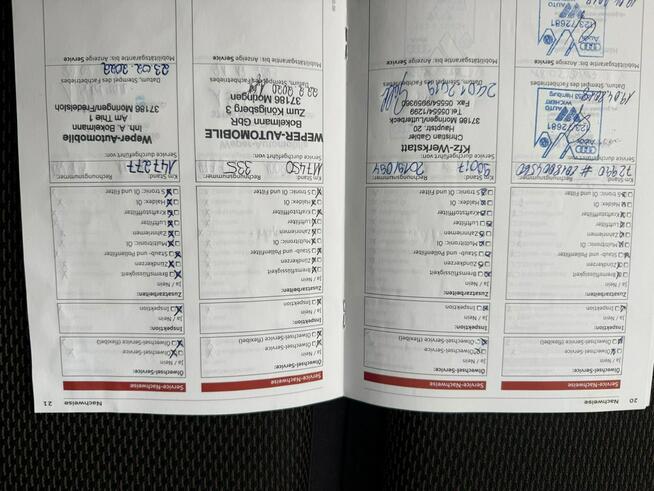 20 Nachweise
Service-Nachweise
Ölwechsel-Service:
Ja / Nein
Ölwechsel-Service
Ölwechsel-Service (flexibel)
Inspektion:
Ja / Nein
Inspektion
Zusatzarbeiten:
Ja / Nein
Bremsflüssigkeit
Zündkerzen
Staub- und Pollenfilter
Multitronic: Öl
Zahnriemen
Luftfilter
Kraftstofffilter
Haldex: Öl
S tronic: Öl und Filter
Km-Stand:
Rechnungsnummer:
Service durchgeführt von:
Audi
Datum, Stempel des Fachbetriebes
Mobilitätsgarantie bis: Anzeige Service
Service-Nachweise
Ölwechsel-Service:
Ja / Nein
Ölwechsel-Service
Ölwechsel-Service (flexibel)
Inspektion:
Ja / Nein
Inspektion
Zusatzarbeiten:
Ja / Nein
Bremsflüssigkeit
Zündkerzen
Staub- und Pollenfilter
Multitronic: Öl
Zahnriemen
Luftfilter
Kraftstofffilter
Haldex: Öl
S tronic: Öl und Filter
Km-Stand:
Rechnungsnummer:
90017
Service durchgeführt von:
Kfz-Werkstatt
Christian Gabler
Hauptstr. 20
37186 Moringen/Lutterbeck
Tel. 05554/1299
Datum, Stempel des Fachbetriebes
24.01.2019
Mobilitätsgarantie bis: Anzeige Service
Nachweise 21
Service-Nachweise
Ölwechsel-Service:
Ja / Nein
Ölwechsel-Service
Ölwechsel-Service (flexibel)
Inspektion:
Ja / Nein
Inspektion
Zusatzarbeiten:
Ja / Nein
Bremsflüssigkeit
Zündkerzen
Staub- und Pollenfilter
Multitronic: Öl
Zahnriemen
Luftfilter
Kraftstofffilter
Haldex: Öl
S tronic: Öl und Filter
Km-Stand:
Rechnungsnummer:
117450
335
Service durchgeführt von:
WEPER-AUTOMOBILE
Bokelmann GbR
Zum Königsberg 3
37186 Moringen
Datum, Stempel des Fachbetriebes
Mobilitätsgarantie bis: Anzeige Service
Service-Nachweise
Ölwechsel-Service:
Ja / Nein
Ölwechsel-Service
Ölwechsel-Service (flexibel)
Inspektion:
Ja / Nein
Inspektion
Zusatzarbeiten:
Ja / Nein
Bremsflüssigkeit
Zündkerzen
Staub- und Pollenfilter
Multitronic: Öl
Zahnriemen
Luftfilter
Kraftstofffilter
Haldex: Öl
S tronic: Öl und Filter
Km-Stand:
Rechnungsnummer:
147277
Service durchgeführt von:
Weper-Automobile
Inh. A. Bokelmann
Am Thie 1
37186 Moringen/Fredelsloh
Datum, Stempel des Fachbetriebes
23.02.2022
Mobilitätsgarantie bis: Anzeige Service